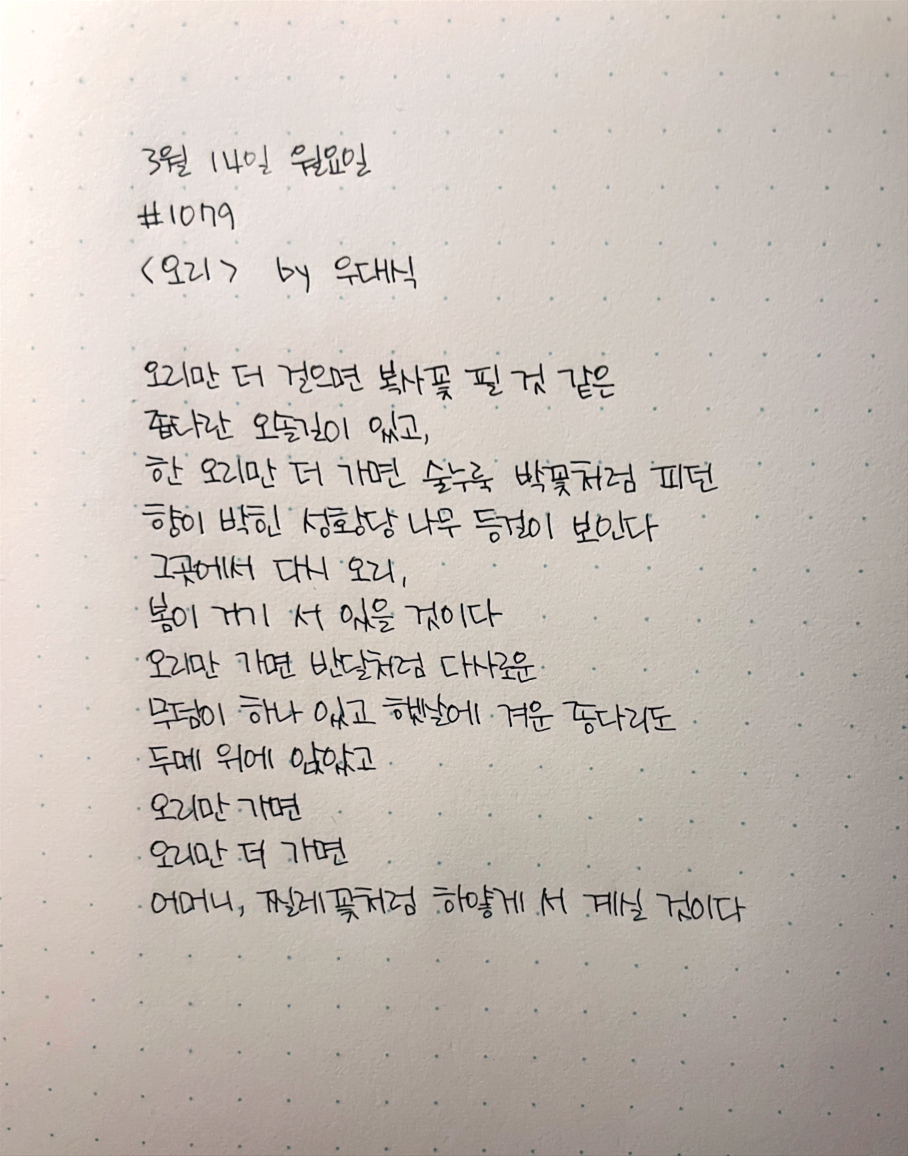 3월 14일 월요일
#1079
<오리> by 우대식
오리만 더 걸으면 복사꽃 필 것 같은
좁다란 오솔길이 있고,
한 오리만 더 가면 술누룩 박꽃처럼 피던
향이 박힌 성황당 나무 등걸이 보인다
그곳에서 다시 오리,
봄이 거기 서 있을 것이다
오리만 가면 반달처럼 다사로운
무덤이 하나 있고 햇살에 겨운 종다리도
두메 위에 앉았고
오리만 가면
오리만 더 가면
어머니, 찔레꽃처럼 하얗게 서 계실 것이다